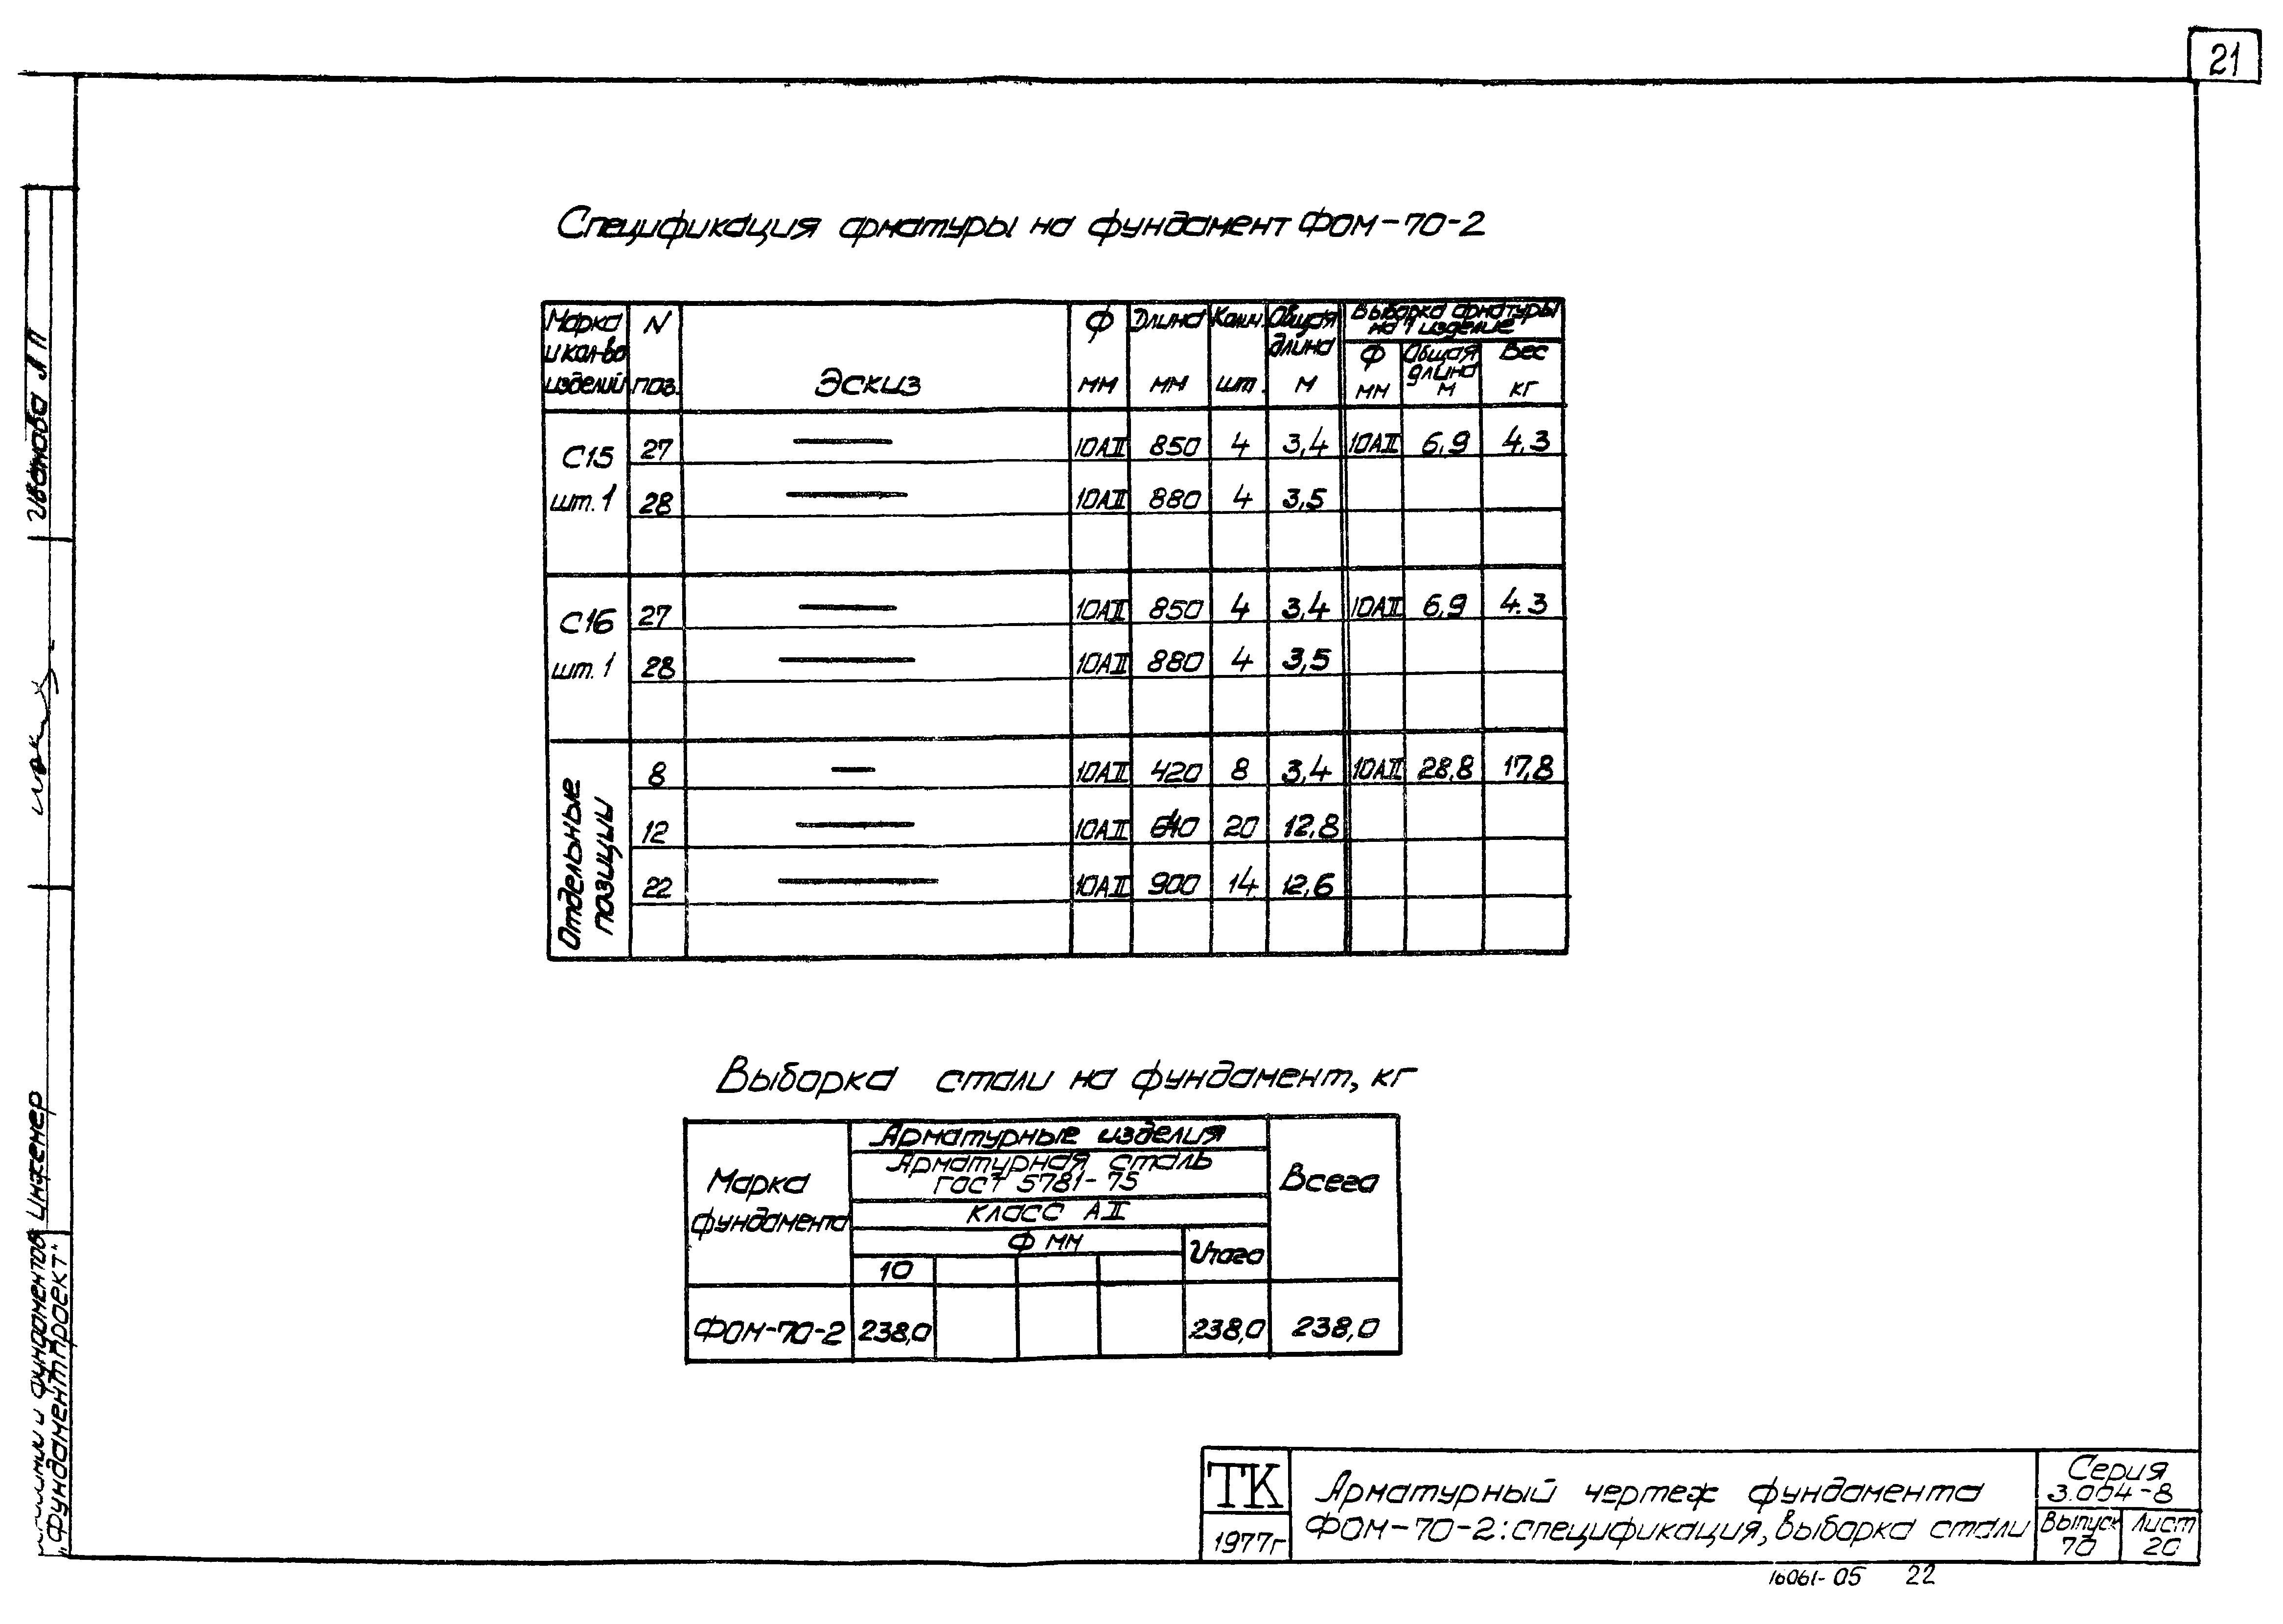 21
Спецификация арматуры на фундамент ФОМ-70-2
Марка и кол-во изделий | N поз. | Эскиз | Ф мм | Длина мм | Колич. шт. | Общая длина м | Выборка арматуры на 1 изделие
Ф мм | Общая длина м | Вес кг
С15 шт. 1 | 27 | 10АII | 850 | 4 | 3,4 | 10АII | 6,9 | 4.3
28 | 10АII | 880 | 4 | 3,5
С16 шт. 1 | 27 | 10АII | 850 | 4 | 3,4 | 10АII | 6,9 | 4.3
28 | 10АII | 880 | 4 | 3,5
Отдельные позиции | 8 | 10АII | 420 | 8 | 3,4 | 10АII | 28,8 | 17,8
12 | 10АII | 640 | 20 | 12,8
22 | 10АII | 900 | 14 | 12,6
Выборка стали на фундамент, кг
Марка фундамента | Арматурные изделия | Всего
Арматурная сталь
ГОСТ 5781-75
класс АII
Ф мм | Итого
10
ФОМ-70-2 | 238,0 | 238,0 | 238,0
ТК
1977г
Арматурный чертеж фундамента
ФОМ-70-2: спецификация, выборка стали
Серия
3.004-8
Выпуск
70
Лист
20
16061-05 22
Иванова Л П
Инженер
и фундаментов
„Фундаментпроект"